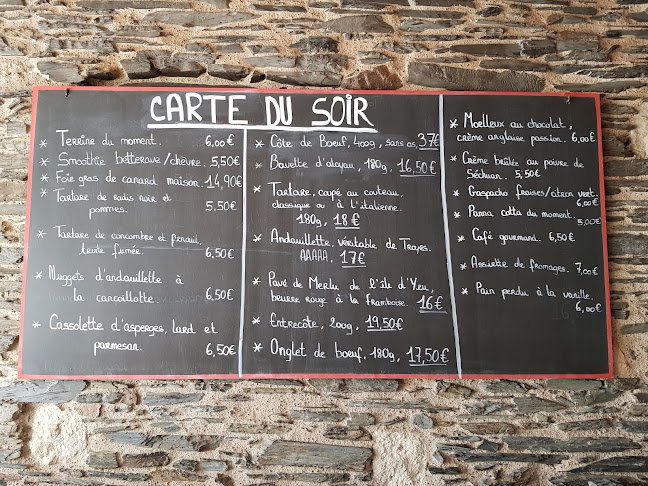 CARTE DU SOIR
* Terrine du moment. 6,00€
* Smoothie betterave/chèvre. 5,50€
* Foie gras de canard maison. 14,90€
* Tartare de radis noir et
pommes. 5,50€
* Tartare de concombre et fenouil,
truite fumée. 6,50€
* Nuggets d'andouillette à
la cancoillotte. 6,50€
* Cassolette d'asperges, lard et
parmesan. 6,50€
* Côte de Boeuf, 400g, sans os. 37€
* Bavette d'aloyau, 180g, 16,50€
* Tartare, coupé au couteau,
classique ou à l'italienne.
180g, 18€
* Andouillette, véritable de Troyes.
AAAAA, 17€
* Pavé de Merlu de l'île d'Yeu,
beurre rouge à la framboise. 16€
* Entrecôte, 200g, 19,50€
* Onglet de boeuf, 180g, 17,50€
* Moelleux au chocolat,
crème anglaise passion. 6,00€
* Crème brûlée au poivre de
Séchuan. 5,50€
* Gaspacho fraises/citron vert.
6,00€
* Panna cotta du moment.
5,00€
* Café gourmand. 6,50€
* Assiette de fromages. 7,00€
* Pain perdu à la vanille.
6,00€